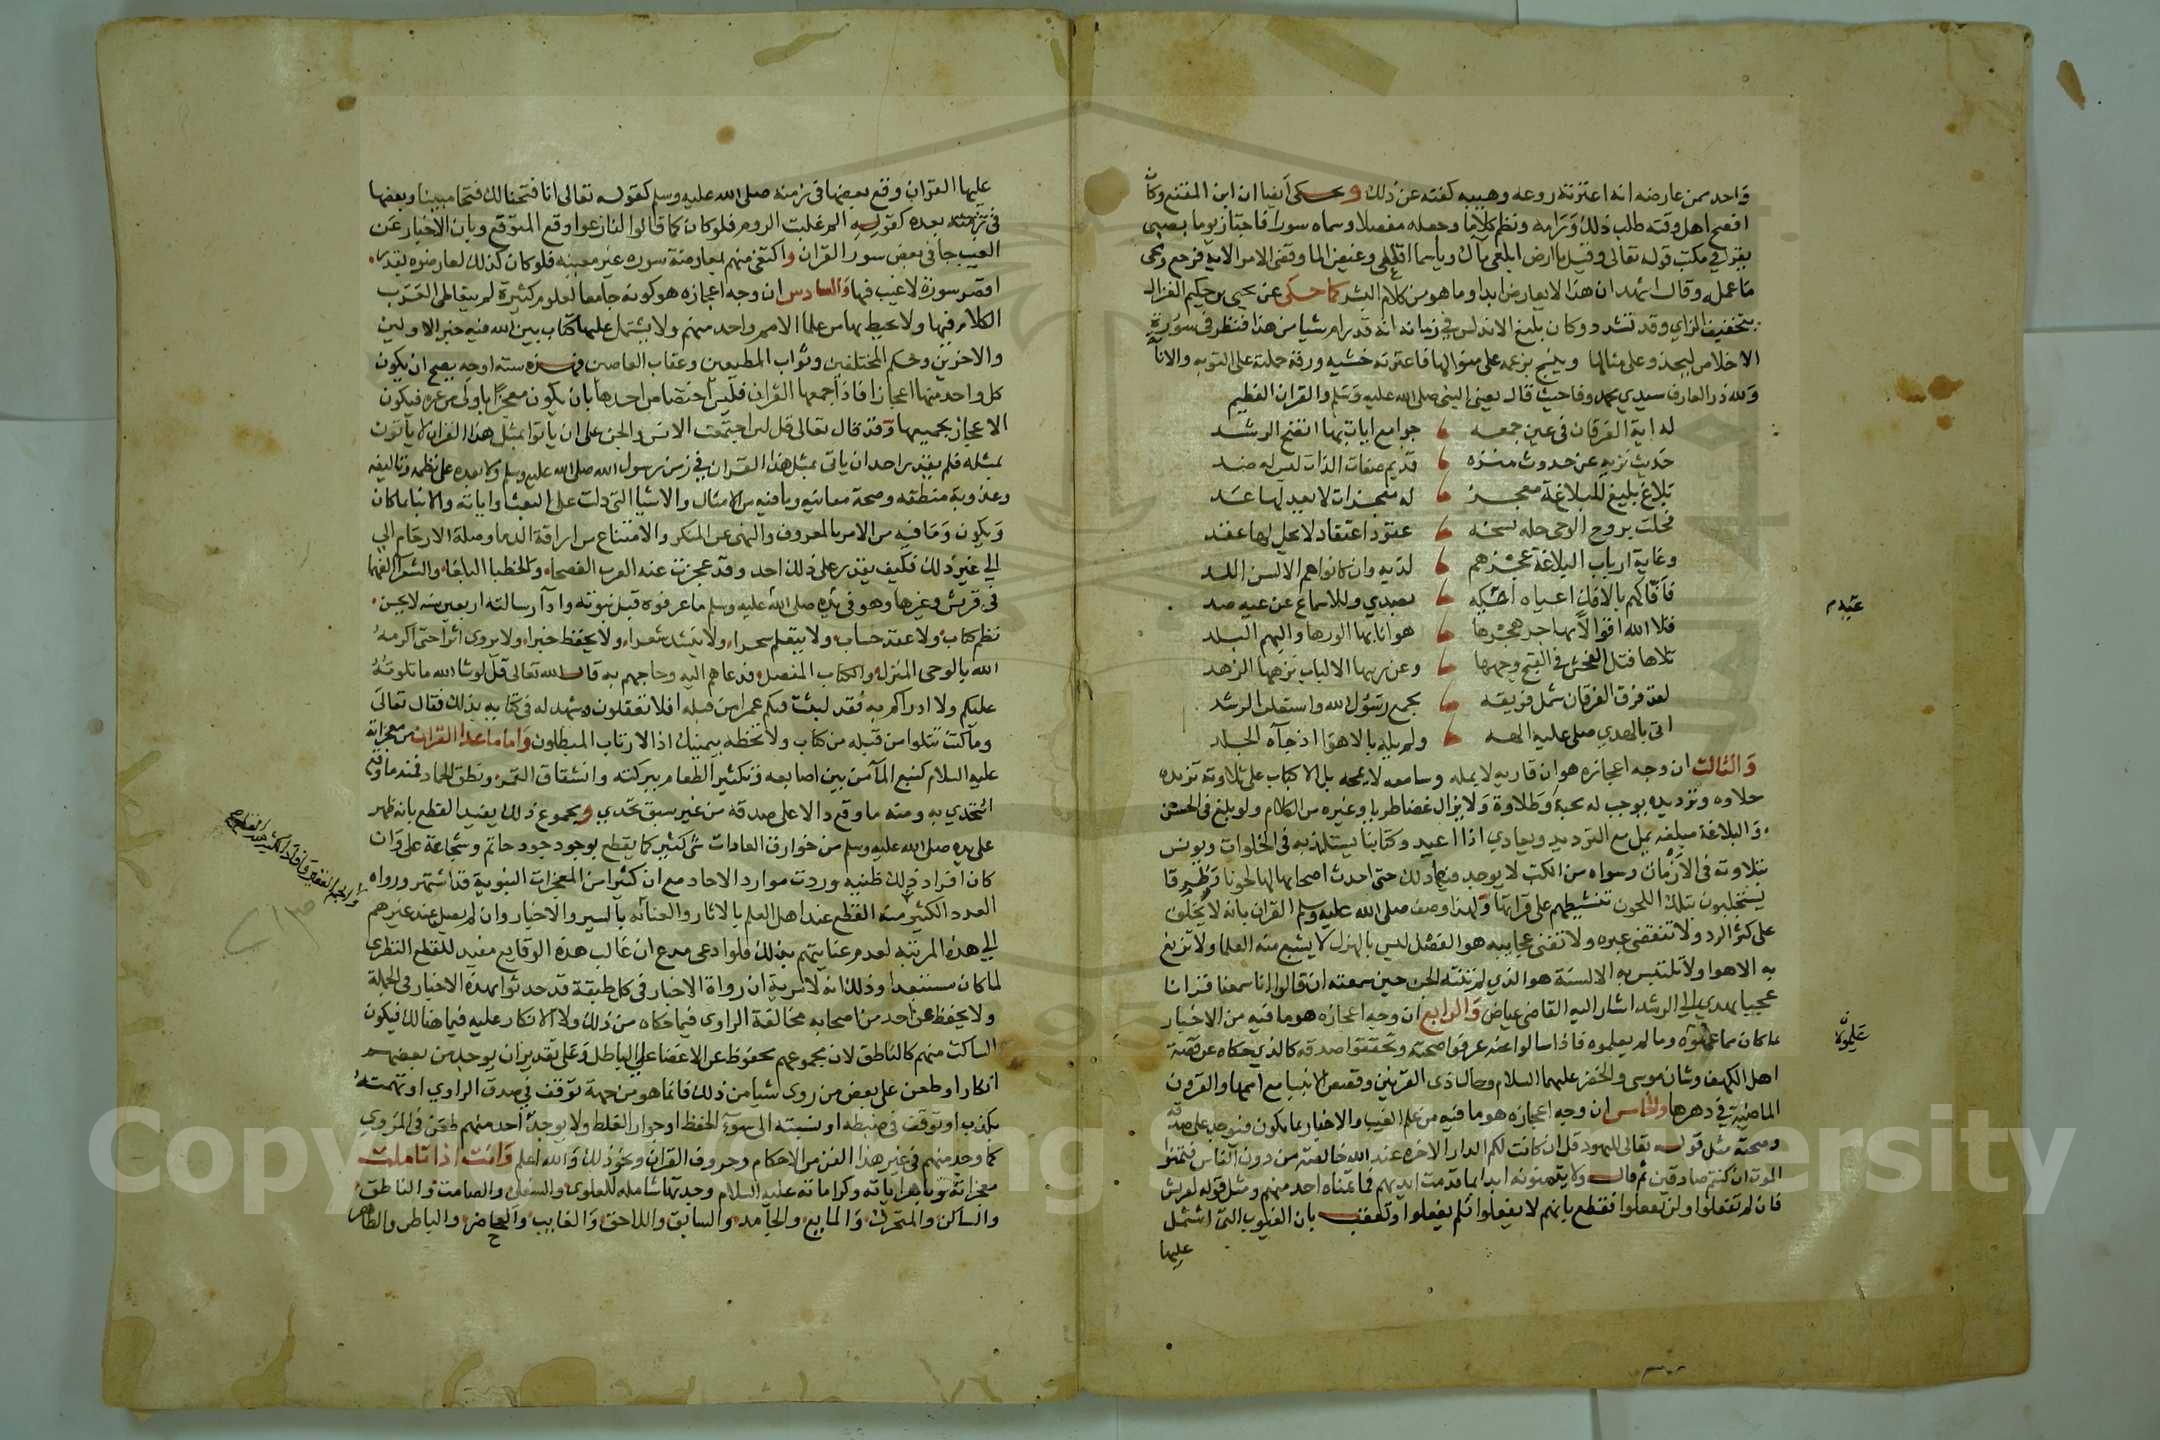 واحد ممن عارضه انه اعترته روعه وهيبه كفته عن ذلك ويحكى ايضا ان ابن المقفع وكان
افصح اهل وقته طلب ذلك ورامه ونظم كلاما وجعله مفصلا وسماه سورا فاجتاز يوما بصبى
يقرا في مكتب قوله تعالى وقيل يا ارض ابلعي ماك وياسما اقلعى وغيض الما وقضى الامر الايه فرجع ومحى
ما عمله وقال اشهد ان هذا لا يعارض ابدا وما هو من كلام البشر كما حكى عن يحيى بن حكيم الغزال
بتخفيف الزاي وقد تشدد وكان بليغ الاندلس في زمانه انه قد رام شيا من هذا فنظر في سورة
الاخلاص ليحذو على مثالها وينسج بزعمه على منوالها فاعترته خشيه ورقة حملته على التوبه والانابة
ولله در العارف سيدي محمد وفا حيث قال يعنى النبى صلى الله عليه وسلم والقران العظيم
له اية الفرقان في عين جمعه جوامع ايات بها اتضح الرشد
حديث نزيه عن حدوث منزه قديم صفات الذات ليس له ضد
بلاغ بليغ للبلاغة معجز له معجزات لا يعد لها عد
تحلت بروح الوحى حلة نسجه عقود اعتقاد لا يحل لها عقد
وغاية ارباب البلاغة عجزهم لديه وان كانوا هم الالسن اللد
فافاكهم بالافك اعياه تصدي وللاسماع عن غيه صد
قلا الله اقوالا بها هجرها هوانا بها الورها والبهم البلد
تلاها فتل الفحش في القبح وجهها وعن ريبها الالباب نزهها الزهد
لقد فرق الفرقان شمل فريقه بجمع رسول الله واستعلن الرشد
اتى بالهدي صلى عليه الهه ولم يله بالاهوا اذ جاه الجد
والثالث ان وجه اعجازه هو ان قاريه لا يمله وسامعه لا يمجه بل الاكباب على تلاوته تزيده
حلاوه وترديده يوجب له محبة وطلاوة ولا يزال غضا طريا وغيره من الكلام ولو بلغ في الحسن
والبلاغة مبلغه يمل مع الترديد ويعادي اذا اعيد وكتابنا يستلذ به في الخلوات ويونس
بتلاوته في الازمان وسواه من الكتب لا يوجد فيها ذلك حتى احدث اصحابها لها لحونا وطرقا
يستجلبون بتلك اللحون تنشيطهم على قراتها ولهذا وصف صلى الله عليه وسلم القران بانه لا يخلق
على كثرة الرد ولا تنقضى عبره ولا تفنى عجايبه هو الفصل ليس بالهزل لا يشبع منه العلما ولا تزيغ
به الاهوا ولا تلتبس به الالسنة هو الذي لم تنته الجن حين سمعته ان قالوا انا سمعنا قرانا
عجبا يهدي الى الرشد اشار اليه القاضى عياض والرابع ان وجه اعجازه هو ما فيه من الاخبار
بما كان مما علموه ومما لم يعلموه فاذا سالوا عنه عرفوا صحته وتحققوا صدقه كالذي حكاه عن قصة
اهل الكهف وشان موسى والخضر عليهما السلام وحال ذى القرنين وقصص الانبيا مع اممها والقرون
الماضية في دهرها والخامس ان وجه اعجازه هو ما فيه من علم الغيب والاخبار بما يكون فيوجد على صدقه
وصحته مثل قوله تعالى لليهود قل ان كانت لكم الدار الاخره عند الله خالصة من دون الناس فتمنوا
الموت ان كنتم صادقين ثم قال ولا يتمنونه ابدا بما قدمت ايديهم فما تمناه احد منهم ومثل قوله لقريش
فان لم تفعلوا ولن تفعلوا فقطع بانهم لا يفعلوا فلم يفعلوا وتعقب بان الغيوب التى اشتمل
عليها
علموه
عليها القران وقع بعضها في زمنه صلى الله عليه وسلم كقوله تعالى انا فتحنا لك فتحا مبينا وبعضها
في بعده كقوله الم غلبت الروم فلو كان كما قالوا لنازعوا وقع المتوقع وبان الاخبار عن
الغيب جا في بعض سور القران واكتفى منهم بمعارضة سوره غير معينه فلو كان كذلك لعارضوه بقدر
اقصر سورة لا غيب فيها والسادس ان وجه اعجازه هو كونه جامعا لعلوم كثيرة لم يتعاطى العرب
الكلام فيها ولا يحيط بها من علما الامم واحد منهم ولا يشتمل عليها كتاب بين الله فيه خبر الاولين
والاخرين وحكم المختلفين وثواب المطيعين وعقاب العاصين فهذه ستة اوجه يصح ان يكون
كل واحد منها اعجازا فاذا جمعها القران فليس اختصاص احدها بان يكون معجزا باولى من غيره فيكون
الاعجاز بجميعها وقد قال تعالى قل لين اجتمعت الانس والجن على ان ياتوا بمثل هذا القران لا ياتون
بمثله فلم يقدر احد ان ياتى بمثل هذا القران في زمن رسول الله صلى الله عليه وسلم ولا بعده على نظمه وتاليفه
وعذوبة منطقه وصحة معانيه وما فيه من الامثال والاشيا التى دلت على البعث واياته والانبا بما كان
ويكون وما فيه من الامر بالمعروف والنهى عن المنكر والامتناع من اراقة الدما وصلة الارحام الى
الى غير ذلك فكيف يقدر على ذلك احد وقد عجزت عنه العرب الفصحا والخطبا البلغا والشعرا الفهما
من قريش وغيرها وهو في مدة صلى الله عليه وسلم ما عرفوه قبل نبوته وادا رسالته اربعين سنه لا يحسن
نظم كتاب ولا عقد حساب ولا يتعلم سحرا ولا ينشد شعرا ولا يحفظ خبرا ولا يروى اثرا حتى اكرمه
الله بالوحى المنزل والكتاب المفصل فدعاهم اليه وحاجهم به قال الله تعالى قل لو شا الله ما تلوته
عليكم ولا ادراكم به فقد لبثت فيكم عمرا من قبله افلا تعقلون وشهد له في كتابه بذلك فقال تعالى
وما كنت تتلوا من قبله من كتاب ولا تخطه بيمينك اذا لارتاب المبطلون واما ما عدا القران من معجزاته
عليه السلام كنبع الما من بين اصابعه وتكثير الطعام ببركته وانشقاق القمر ونطق الجماد فمنه ما وقع
التحدي به ومنه ما وقع دالا على صدقه من غير سبق تحدي ومجموع ذلك يفيد القطع بانه ظهر
على يده صلى الله عليه وسلم من خوارق العادات شى كثير كما يقطع بوجود جود حاتم وشجاعة على وان
كان افراد ذلك ظنيه وردت موارد الاحاد مع ان كثيرا من المعجزات النبوية قد اشتهر ورواه
العدد الكثير منه القطع عند اهل العلم بالاثار والعناية بالسير والاخبار وان لم يصل عند غيرهم
الى هذه المرتبه لعدم عنايتهم بذلك فلو ادعى مدع ان غالب هذه الوقايع مفيد للقطع النظرى
لما كان مستبعدا وذلك انه لا مرية ان رواة الاخبار في كل طبقة قد حدثوا بهذه الاخبار في الجملة
ولا يحفظ عن احد من اصحابه مخالفة الراوى فيما حكاه من ذلك ولا الانكار عليه فيما هنالك فيكون
الساكت منهم كالناطق لان مجموعهم محفوظ عن الاغضا على الباطل وعلى تقدير ان يوجد من بعضهم
انكار او طعن على بعض من روى شيا من ذلك فانما هو من جهة توقف في صدق الراوي او تهمته
بكذب او توقف في ضبطه او نسبته الى سوء الحفظ او جواز الغلط ولا يوجد احد منهم طعن في المروي
كما وجد منهم في غير هذا الفن من الاحكام وحروف القران ونحو ذلك والله اعلم وانت اذا تاملت
معجزاته وباهر اياته وكراماته عليه السلام وجدتها شاملة للعلوى والسفلى والصامت والناطق
والساكن والمتحرك والمايع والجامد والسابق واللاحق والغايب والحاضر والباطن والظاهر